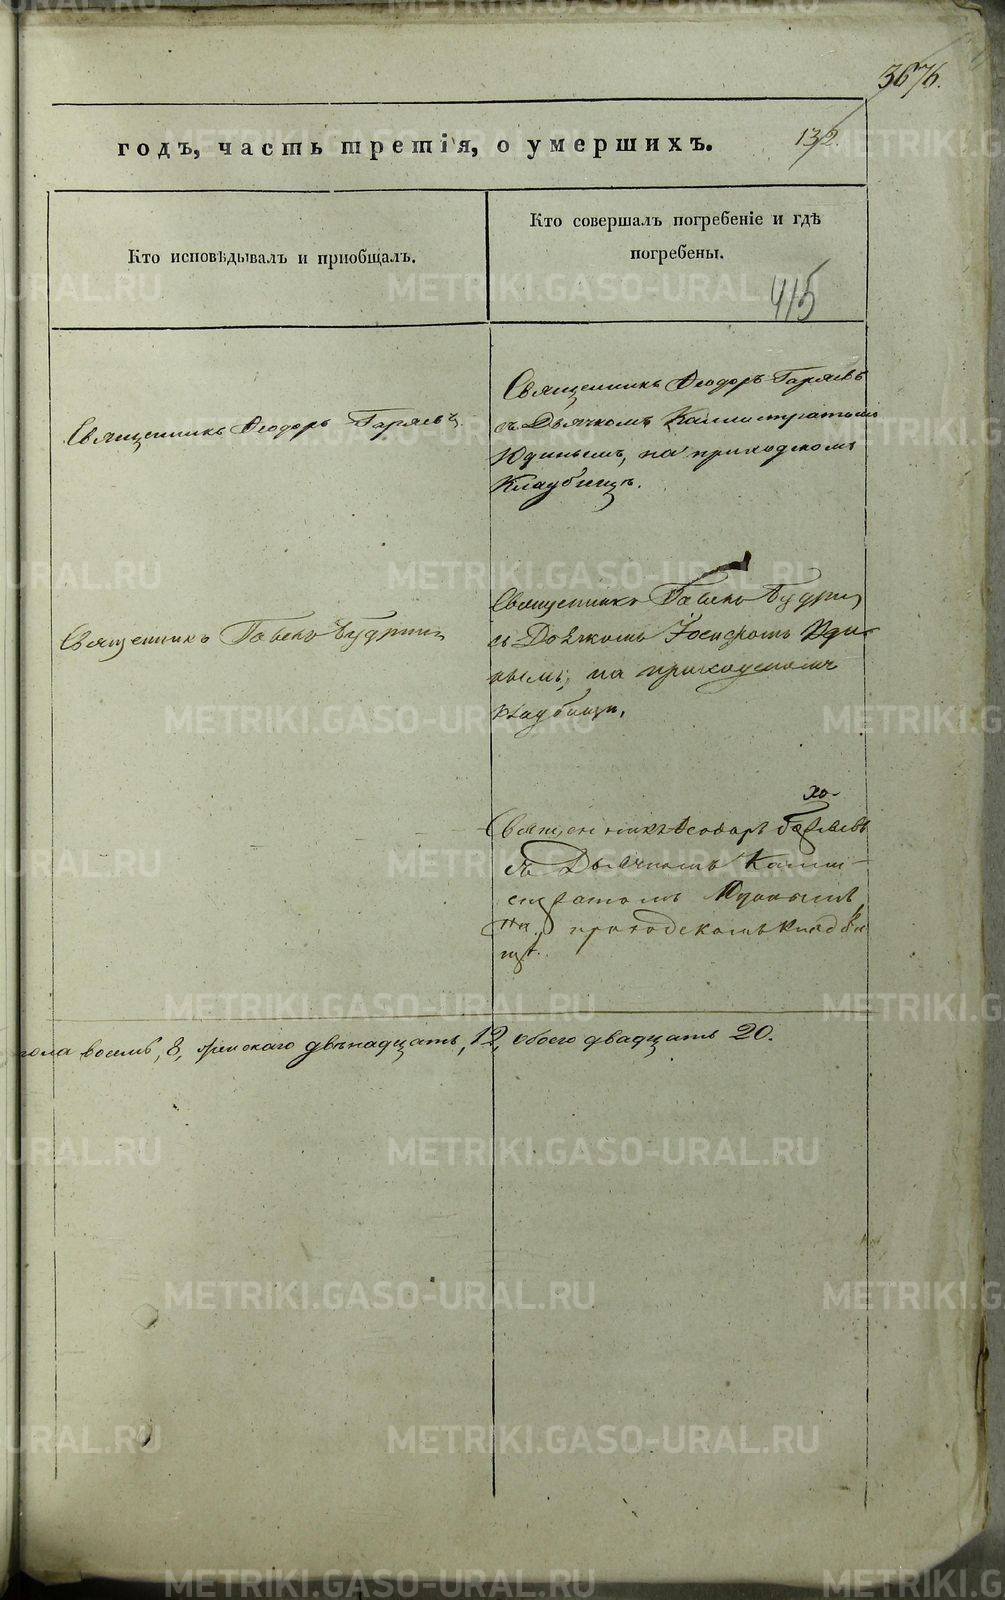 3676.
годъ, часть третія, о умершихъ.
132.
Кто исповѣдывалъ и приобщалъ.
Кто совершалъ погребеніе и гдѣ
погребены.
415
Священникъ Ѳеодоръ Гаряевъ.
Священникъ Ѳеодоръ Гаряевъ
съ Дьячкомъ Каллистратомъ
Юдинымъ, на приходскомъ
Кладбищѣ.
Священникъ Павелъ Будрин
Священникъ Павелъ Будрин
съ Дьячкомъ Юди-
нымъ, на приходскомъ
кладбищѣ.
Священникъ Ѳеодоръ
съ Дьячкомъ Калли-
стратомъ Юдинымъ
На приходскомъ кладби
щѣ.
пола восемь, 8, женскаго двѣнадцать, 12, обоего двадцать 20.
METRIKI.GASO-URAL.RU